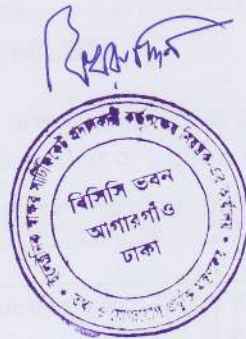 ইলেকট্রনিক স্বাক্ষর সার্টিফিকেট প্রদানকারী কর্তৃপক্ষের নিয়ন্ত্রক-এর কার্যালয়
বিসিসি ভবন
আগারগাঁও
ঢাকা
তথ্য ও যোগাযোগ প্রযুক্তি